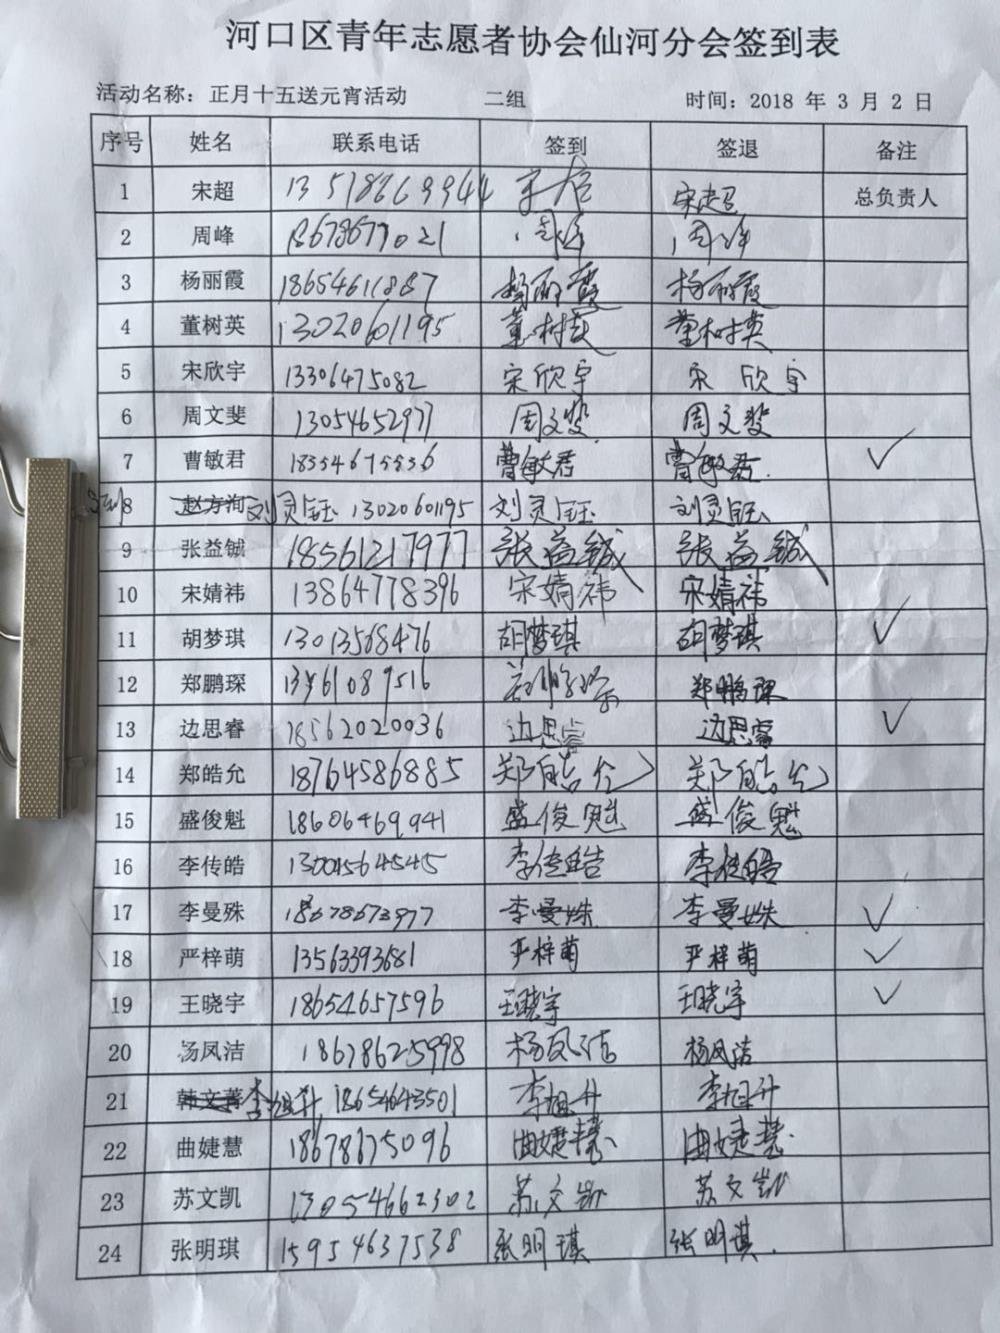 河口区青年志愿者协会仙河分会签到表
活动名称：正月十五送元宵活动 二组 时间：2018 年 3 月 2 日
序号 姓名 联系电话 签到 签退 备注
1 宋超 13518269944 宋超 总负责人
2 周峰 18678679021 周峰 周峰
3 杨丽霞 18654611887 杨丽霞 杨丽霞
4 董树英 13020601195 董树英 董树英
5 宋欣宇 13306475082 宋欣宇 宋欣宇
6 周文斐 13054652977 周文斐 周文斐
7 曹敏君 18354675836 曹敏君 曹敏君 ✓
8 赵方洵 刘灵钰 13020601195 刘灵钰 刘灵钰
9 张益铖 18561217977 张益铖 张益铖
10 宋婧祎 13864778396 宋婧祎 宋婧祎
11 胡梦琪 13013568476 胡梦琪 胡梦琪 ✓
12 郑鹏琛 郑鹏琛 郑鹏琛
13 边思睿 18562020036 边思睿 边思睿 ✓
14 郑皓允 18764586885 郑皓允 郑皓允
15 盛俊魁 18606469941 盛俊魁 盛俊魁
16 李传皓 13001564545 李传皓 李传皓
17 李曼殊 18678673977 李曼姝 李曼姝 ✓
18 严梓萌 13563393681 严梓萌 严梓萌 ✓
19 王晓宇 18654657596 王晓宇 王晓宇 ✓
20 杨凤洁 18678625998 杨凤洁 杨凤洁
21 韩文菁 李旭升 18654643501 李旭升 李旭升
22 曲婕慧 18678675096 曲婕慧 曲婕慧
23 苏文凯 17054662302 苏文凯 苏文凯
24 张明琪 15954637538 张明琪 张明琪